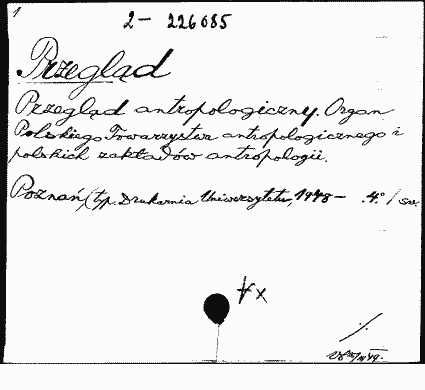 1
2 — 226085
Przegląd
Przegląd antropologiczny. Organ
Polskiego Towarzystwa antropologicznego i
polskich zakładów antropologii.
Poznań, (typ. Drukarnia Uniwersytetu, 1948 — 4° /
x